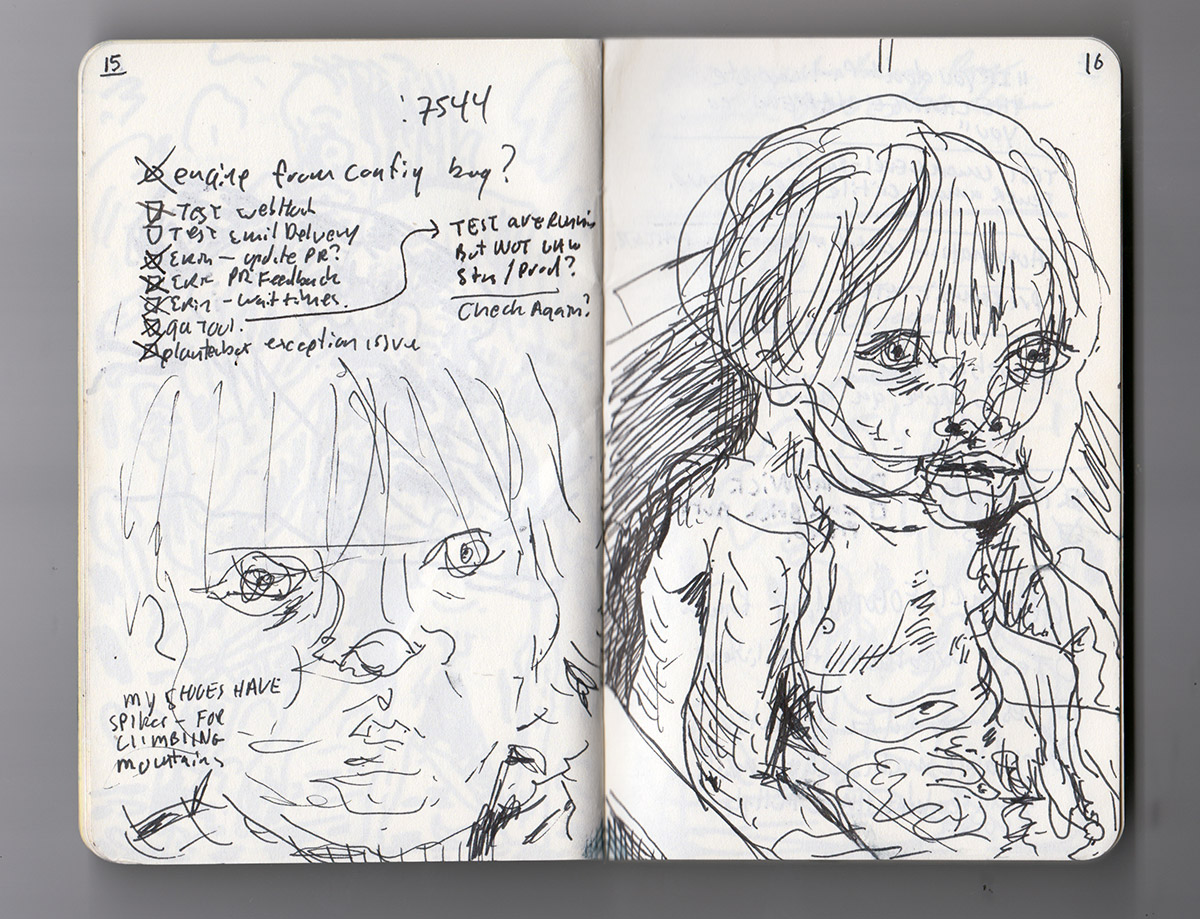 15
: 7544
engine from config bug?
Test webhook
Test Email Delivery
Erin - update PR?
Erin PR Feedback
Erin - wait times.
QA Tool.
planterbox exception issue
TEST are Running
But NOT
Stas / Prod?
Check Again?
my SHOES HAVE
spikes - FOR
CLIMBIING
mountains
16